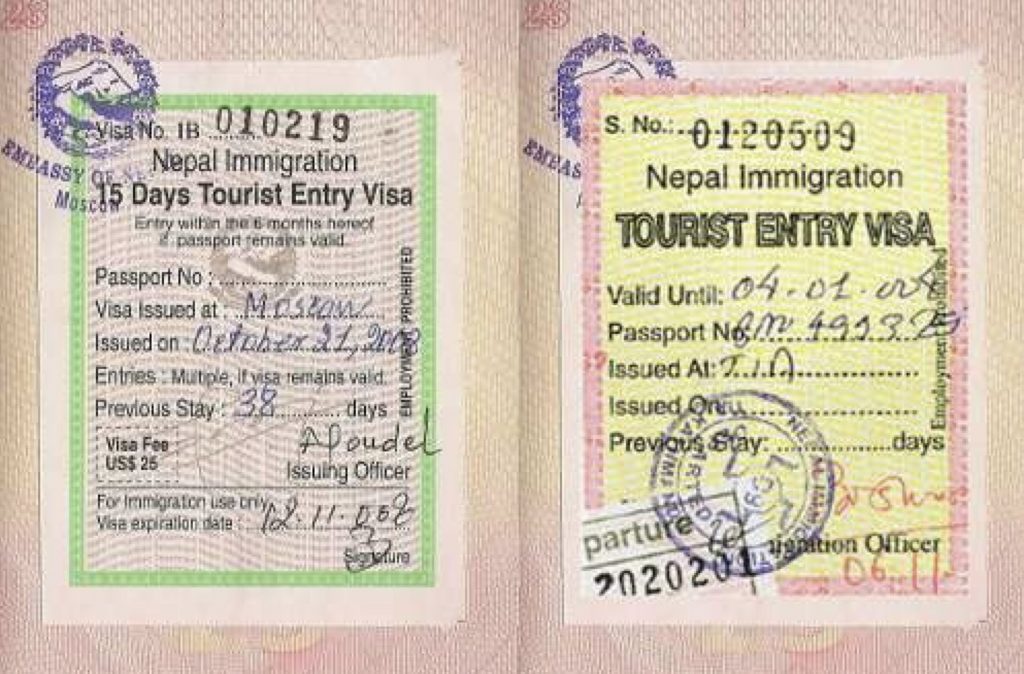 Visa No. IB 010219
Nepal Immigration
15 Days Tourist Entry Visa
Entry within the 6 months hereof
if passport remains valid.
Passport No :
Visa Issued at : Moscow
Issued on : October 21, 2008
Entries : Multiple, if visa remains valid.
Previous Stay : 38 days
Visa Fee
US$ 25
Issuing Officer
For Immigration use only
Visa expiration date :
Signature
EMPLOYMENT PROHIBITED
EMBASSY OF
Moscow
S. No.: 0120509
Nepal Immigration
TOURIST ENTRY VISA
Valid Until: 04.01.
Passport No.
Issued At: T.I.A
Issued On:
Previous Stay: days
Officer
06.11.
parture
2020201